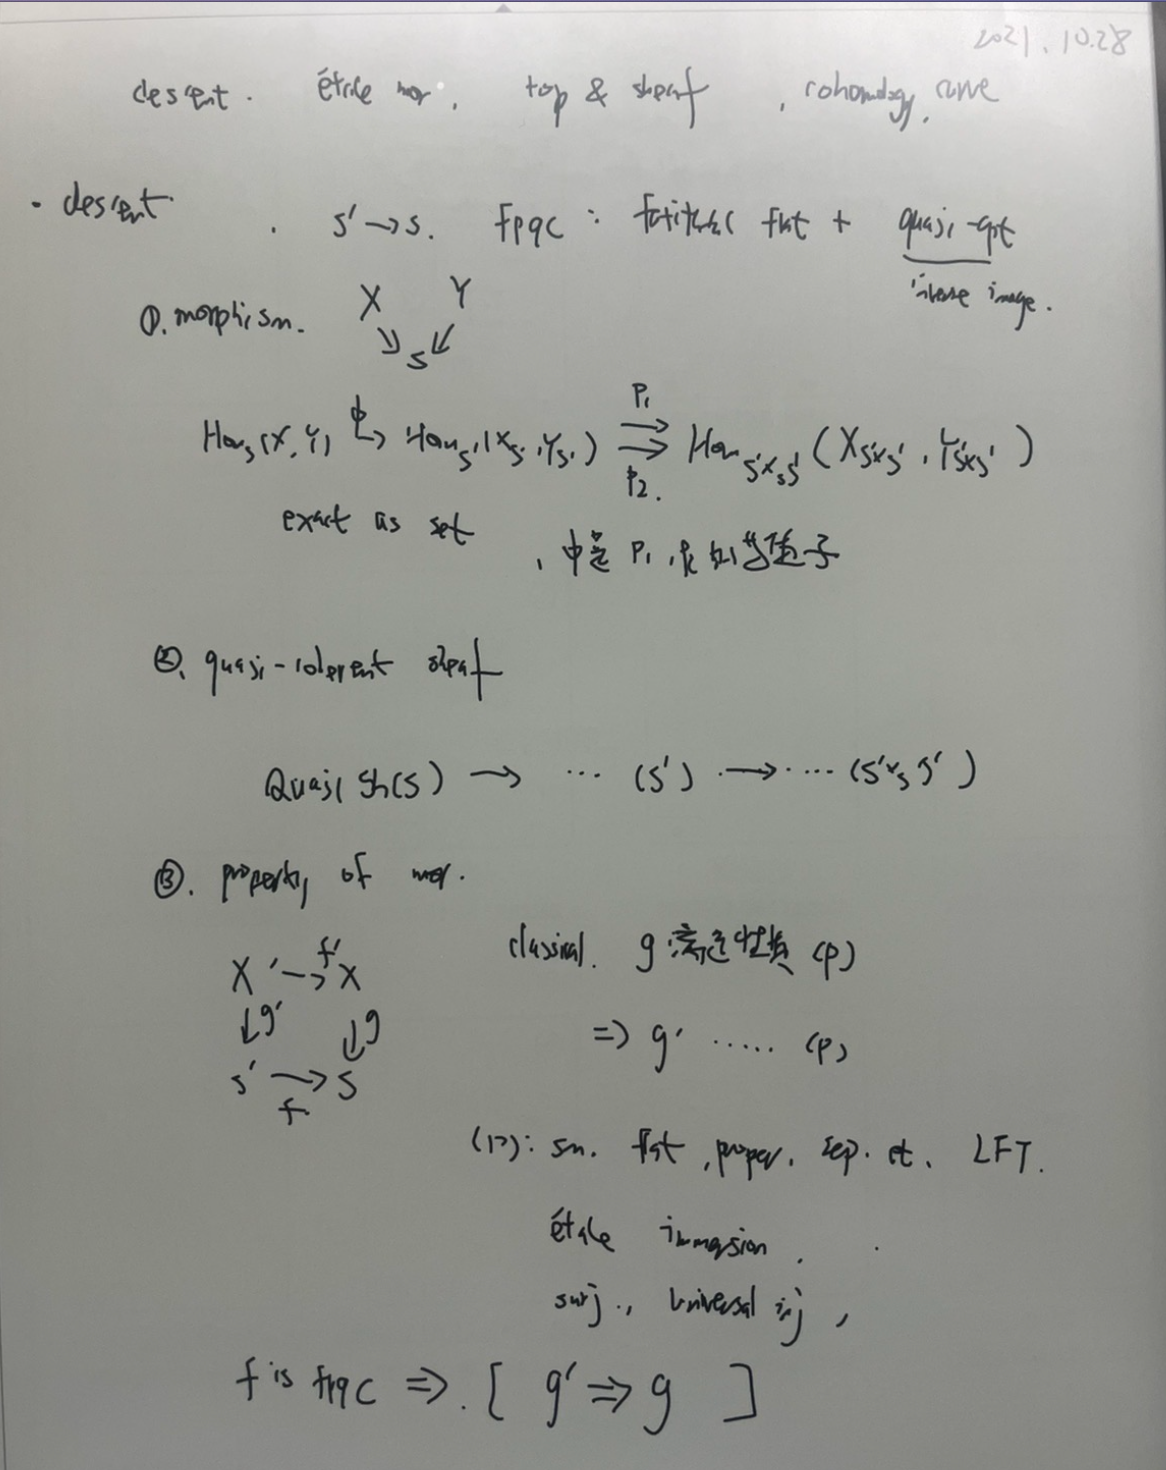 2021.10.28
descent. étale mor. top & sheaf, cohomology, curve
· descent. S' → S. fpqc: faithful flat + quasi-cpt
inverse image.
①. morphism. X Y
S
Hom_S(X,Y) ↪ϕ Hom_S'(X_S', Y_S') ⇉ Hom_{S'×_S S'}(X_{S'×S'}, Y_{S'×S'})
P₁
P₂.
exact as set, ϕ是 P₁, P₂ 的等值子
②. quasi-coherent sheaf
Quasi Sh(S) → ··· (S') → ···· (S'×_S S')
③. property of mor.
X' →f' X classical. g 满足性质 (P)
↓g' ↓g ⇒ g' ····· (P)
S' → S
f
(P): sm. flat, proper, sep. et. LFT.
étale immersion.
surj., universal inj,
f is fpqc ⇒. [ g' ⇒ g ]